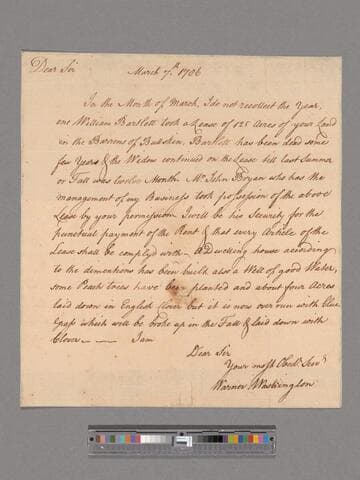 Dear Sir
March 7.th 1786
In the Month of March, I do not recollect the Year,
one William Bartlett took a Lease of 125 Acres of your Land
in the Barrens of Bullskin, Bartlett has been dead some
few Years & the Widow continued on the Lease till last Summer
or Fall was twelve Month Mr John Bryan who has the
management of my Business took possession of the above
Lease by your permission I will be his Security for the
punctual payment of the Rent & that every Article of the
Lease shall be comply'd with - A Dwelling house according
to the dementions has been built also a Well of good Water,
some Peach trees have been planted and about four Acres
laid down in English Clover but it is now over run with Blue
Grass which will be broke up in the Fall & laid down with
Clover — — I am
Dear Sir
Your most Obedt. Servt
Warner Washington